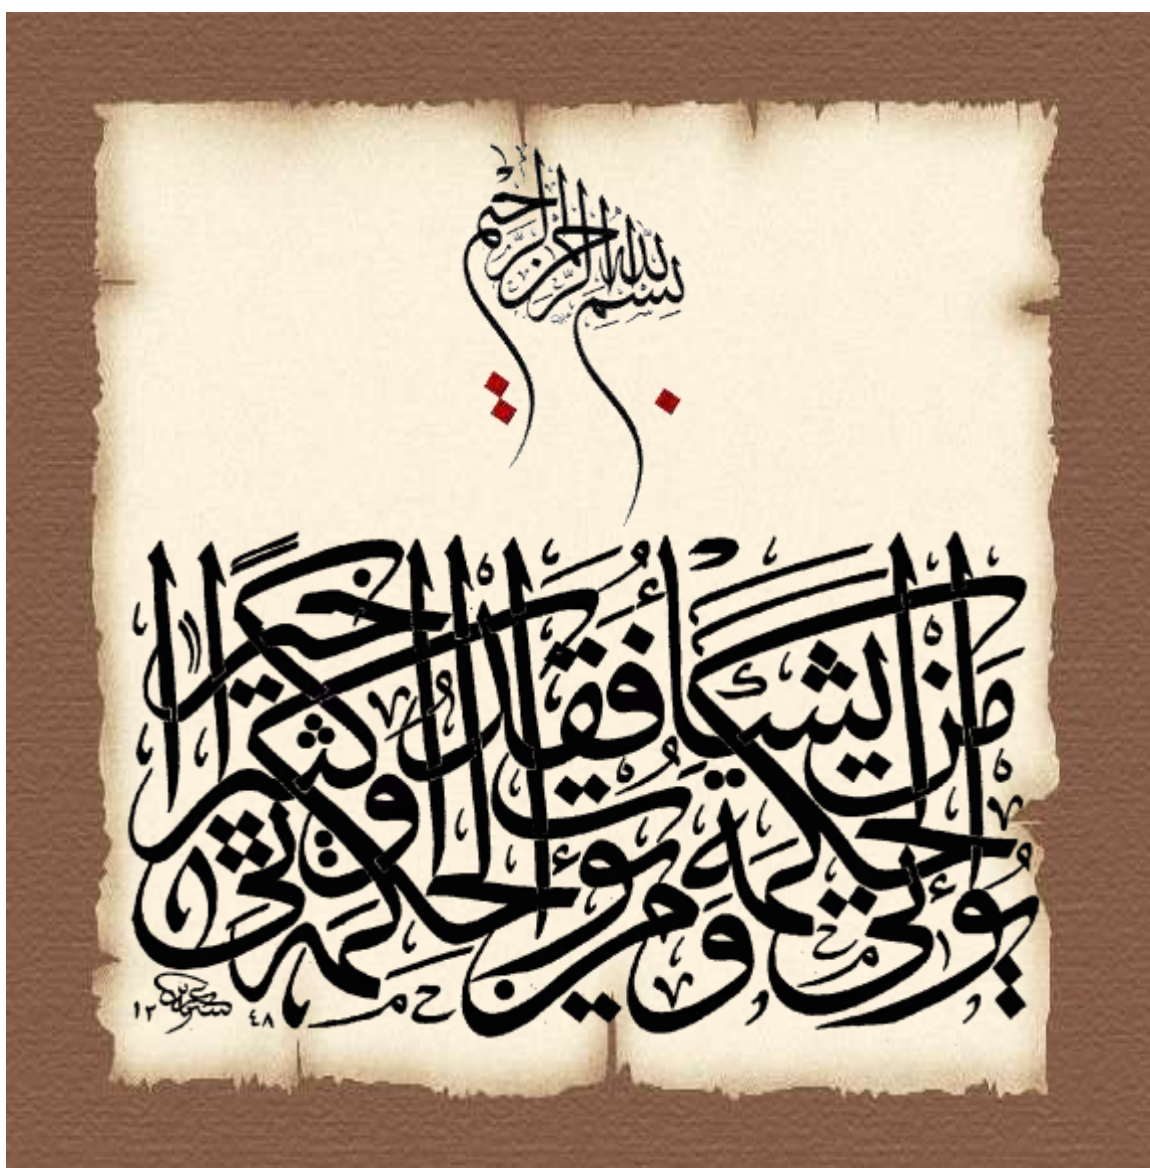 بسم الله الرحمن الرحيم
يُؤتي الحِكمَةَ مَن يَشَاءُ وَمَن يُؤتَ الحِكمَةَ فَقَد أُوتِيَ خَيرًا كَثِيرًا
١٢ ٤٨